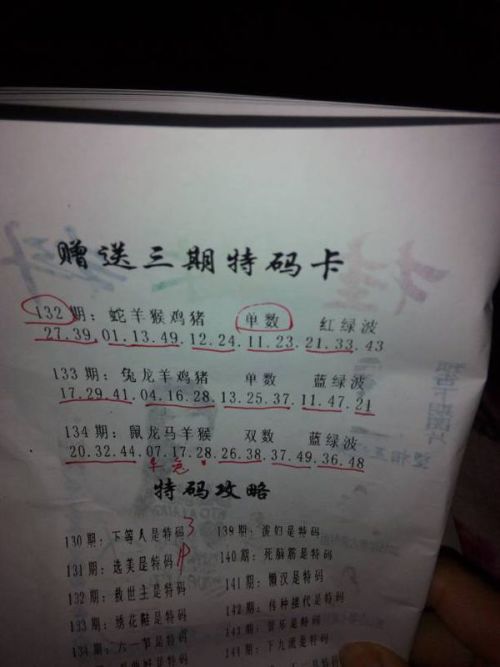 赠送三期特码卡
132期：蛇羊猴鸡猪 单数 红绿波
27.39.01.13.49.12.24.11.23.21.33.43
133期：兔龙羊鸡猪 单数 蓝绿波
17.29.41.04.16.28.13.25.37.11.47.21
134期：鼠龙马羊猴 双数 蓝绿波
20.32.44.07.17.28.26.38.37.49.36.48
特码攻略
130期：下等人是特码 3
131期：选美是特码
132期：救世主是特码
133期：绣花鞋是特码
134期：六一节是特码
139期：波幻是特码
140期：死脑筋是特码
141期：懒汉是特码
142期：传种接代是特码
143期：音乐是特码
144期：下九流是特码